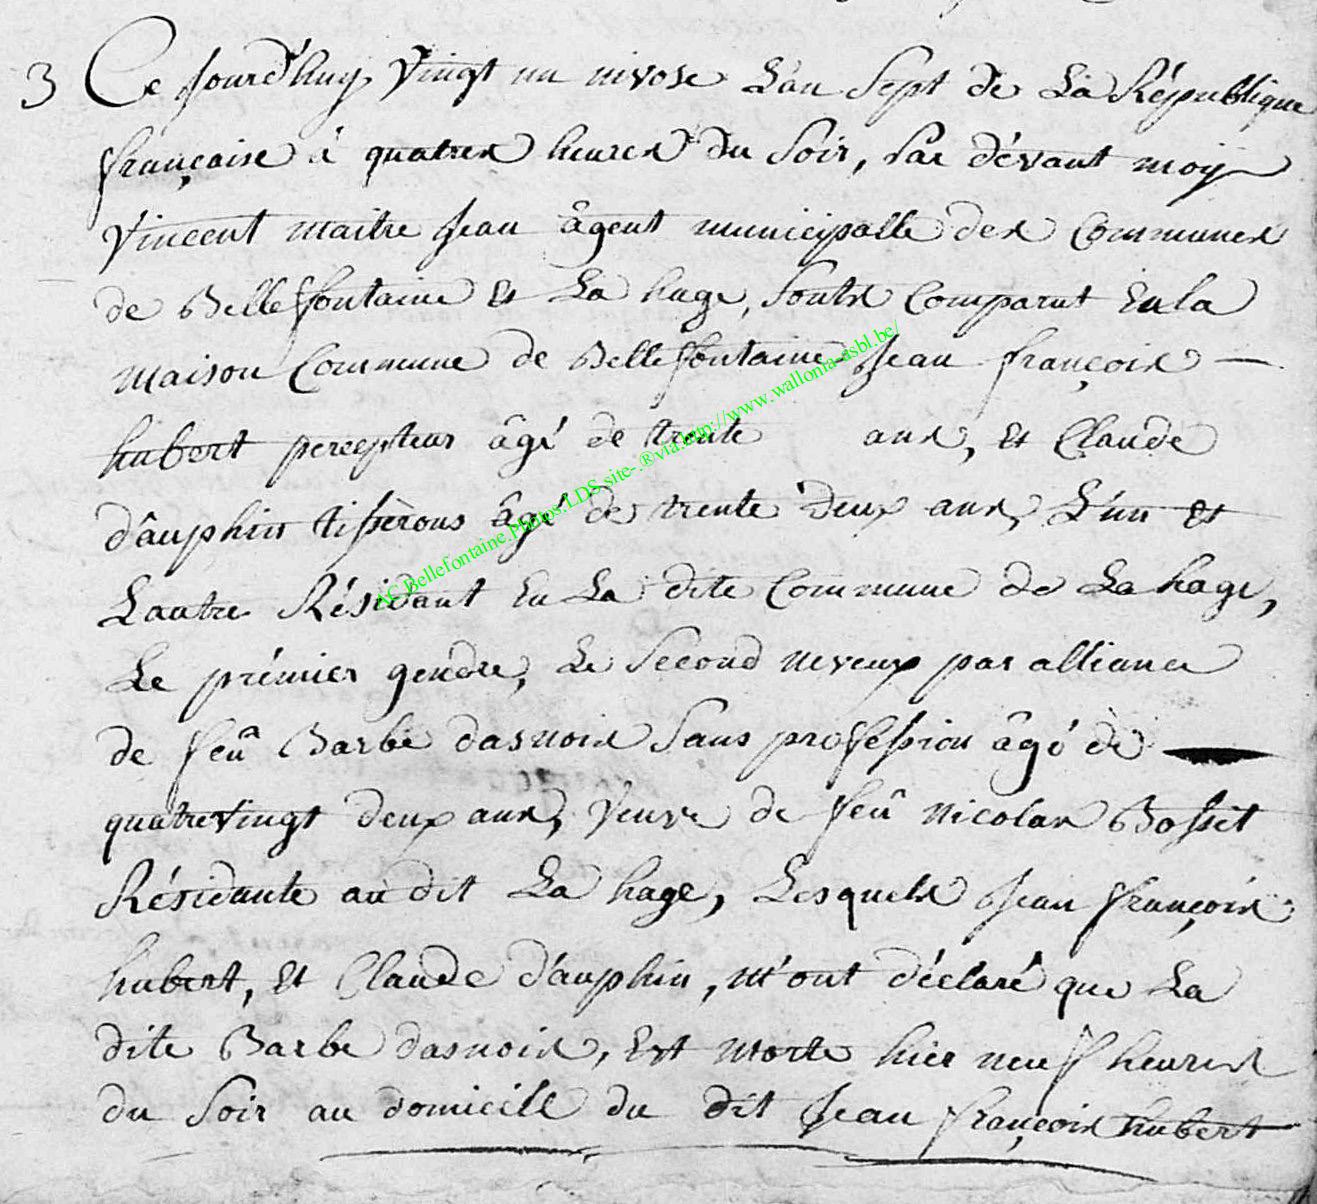 3 Ce jourd'huy vingt un nivose L'an Sept de La République
françoise à quatres heures du Soir, Par dévant moÿ
Vincent maitre Jean âgent municipalle des Communes
de Bellefontaine et La hage, Sonts Comparut En la
Maison Commune de Bellefontaine Jean françois —
hubert percepteur âgé de trente ans, et Claude
dâuphin tisserons âgé de trente deux ans, L'un et
L'autre Résidant En La dite Commune de La hage,
Le prémier gendre, Le Second neveux par alliance
de feû Barbe dasnois Sans profession âgé de
quatrevingt deux ans, Veuve de feû nicolas Bosset
Résidante au dit La hage, Lesquels Jean françois
hubert, et Claude d'auphin, m'ont déclaré que La
dite Barbe dasnois, Est morte hier neuf heures
du Soir au domicille du dit Jean françois hubert
AC Bellefontaine.Photos.LDS site-.®via.http://www.wallonia-asbl.be/